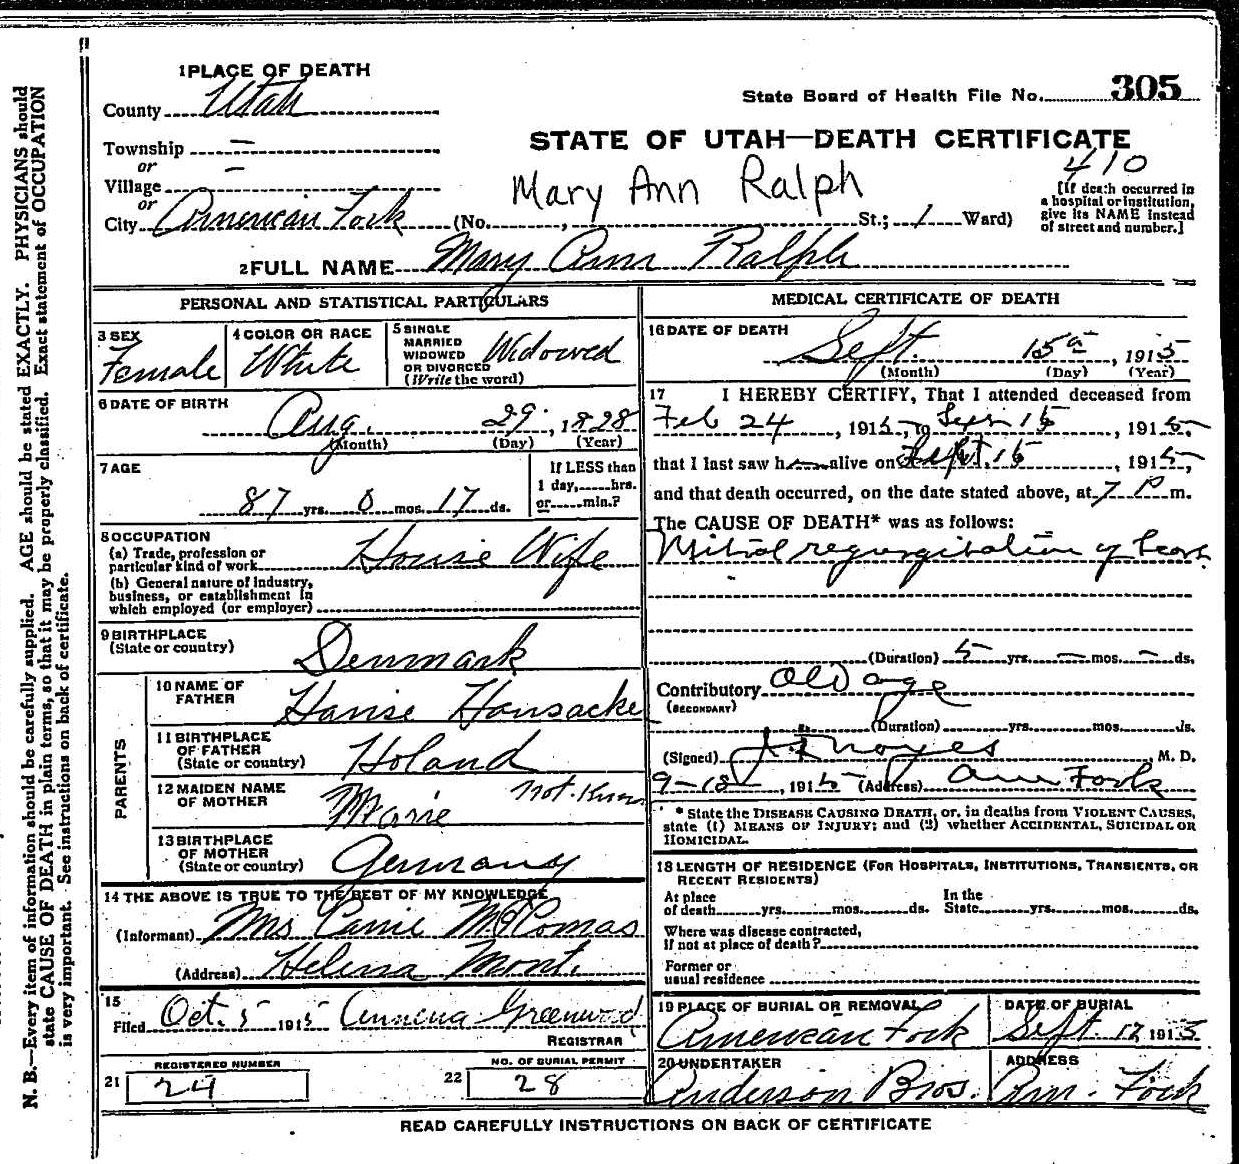 1 PLACE OF DEATH
County Utah
State Board of Health File No. 305
Township —
or
Village —
or
City American Fork (No. , St.; 1 Ward)
STATE OF UTAH—DEATH CERTIFICATE
410
Mary Ann Ralph
[If death occurred in
a hospital or institution,
give its NAME instead
of street and number.]
2 FULL NAME Mary Ann Ralph
PERSONAL AND STATISTICAL PARTICULARS
3 SEX
Female
4 COLOR OR RACE
White
5 SINGLE
MARRIED
WIDOWED
OR DIVORCED
(Write the word)
Widowed
6 DATE OF BIRTH
Aug. 29, 1828
(Month) (Day) (Year)
7 AGE
87 yrs. 0 mos. 17 ds.
If LESS than
1 day, hrs.
or min.?
8 OCCUPATION
(a) Trade, profession or
particular kind of work House Wife
(b) General nature of industry,
business, or establishment in
which employed (or employer)
9 BIRTHPLACE
(State or country)
Denmark
PARENTS
10 NAME OF
FATHER
Hanse Hansacke
11 BIRTHPLACE
OF FATHER
(State or country)
Holand
12 MAIDEN NAME
OF MOTHER
Marie not. Known
13 BIRTHPLACE
OF MOTHER
(State or country)
Germany
14 THE ABOVE IS TRUE TO THE BEST OF MY KNOWLEDGE
(Informant) Mrs Carrie McComas
(Address) Helena Mont.
15
Filed Oct. 5 1915 Greenwood
REGISTRAR
21 REGISTERED NUMBER
24
22 NO. OF BURIAL PERMIT
28
MEDICAL CERTIFICATE OF DEATH
16 DATE OF DEATH
Sept. 15 , 1915
(Month) (Day) (Year)
17 I HEREBY CERTIFY, That I attended deceased from
Feb 24 , 1915, to Sep 15 , 1915,
that I last saw h alive on Sept. 15 , 1915,
and that death occurred, on the date stated above, at 7 P m.
The CAUSE OF DEATH* was as follows:
Mitral regurgitation of heart
(Duration) 5 yrs. — mos. — ds.
Contributory Old age
(SECONDARY)
(Duration) yrs. mos. ds.
(Signed) Noyes M. D.
9-18 , 1915 (Address) Am Fork
* State the DISEASE CAUSING DEATH, or, in deaths from VIOLENT CAUSES,
state (1) MEANS OF INJURY; and (2) whether ACCIDENTAL, SUICIDAL OR
HOMICIDAL.
18 LENGTH OF RESIDENCE (FOR HOSPITALS, INSTITUTIONS, TRANSIENTS, OR
RECENT RESIDENTS)
At place
of death yrs. mos. ds.
In the
State yrs. mos. ds.
Where was disease contracted,
if not at place of death?
Former or
usual residence
19 PLACE OF BURIAL OR REMOVAL
American Fork
DATE OF BURIAL
Sept. 17 1915
20 UNDERTAKER
Anderson Bros.
ADDRESS
Am. Fork
READ CAREFULLY INSTRUCTIONS ON BACK OF CERTIFICATE
N. B.—Every item of information should be carefully supplied. AGE should be stated EXACTLY. PHYSICIANS should
state CAUSE OF DEATH in plain terms, so that it may be properly classified. Exact statement of OCCUPATION
is very important. See instructions on back of certificate.